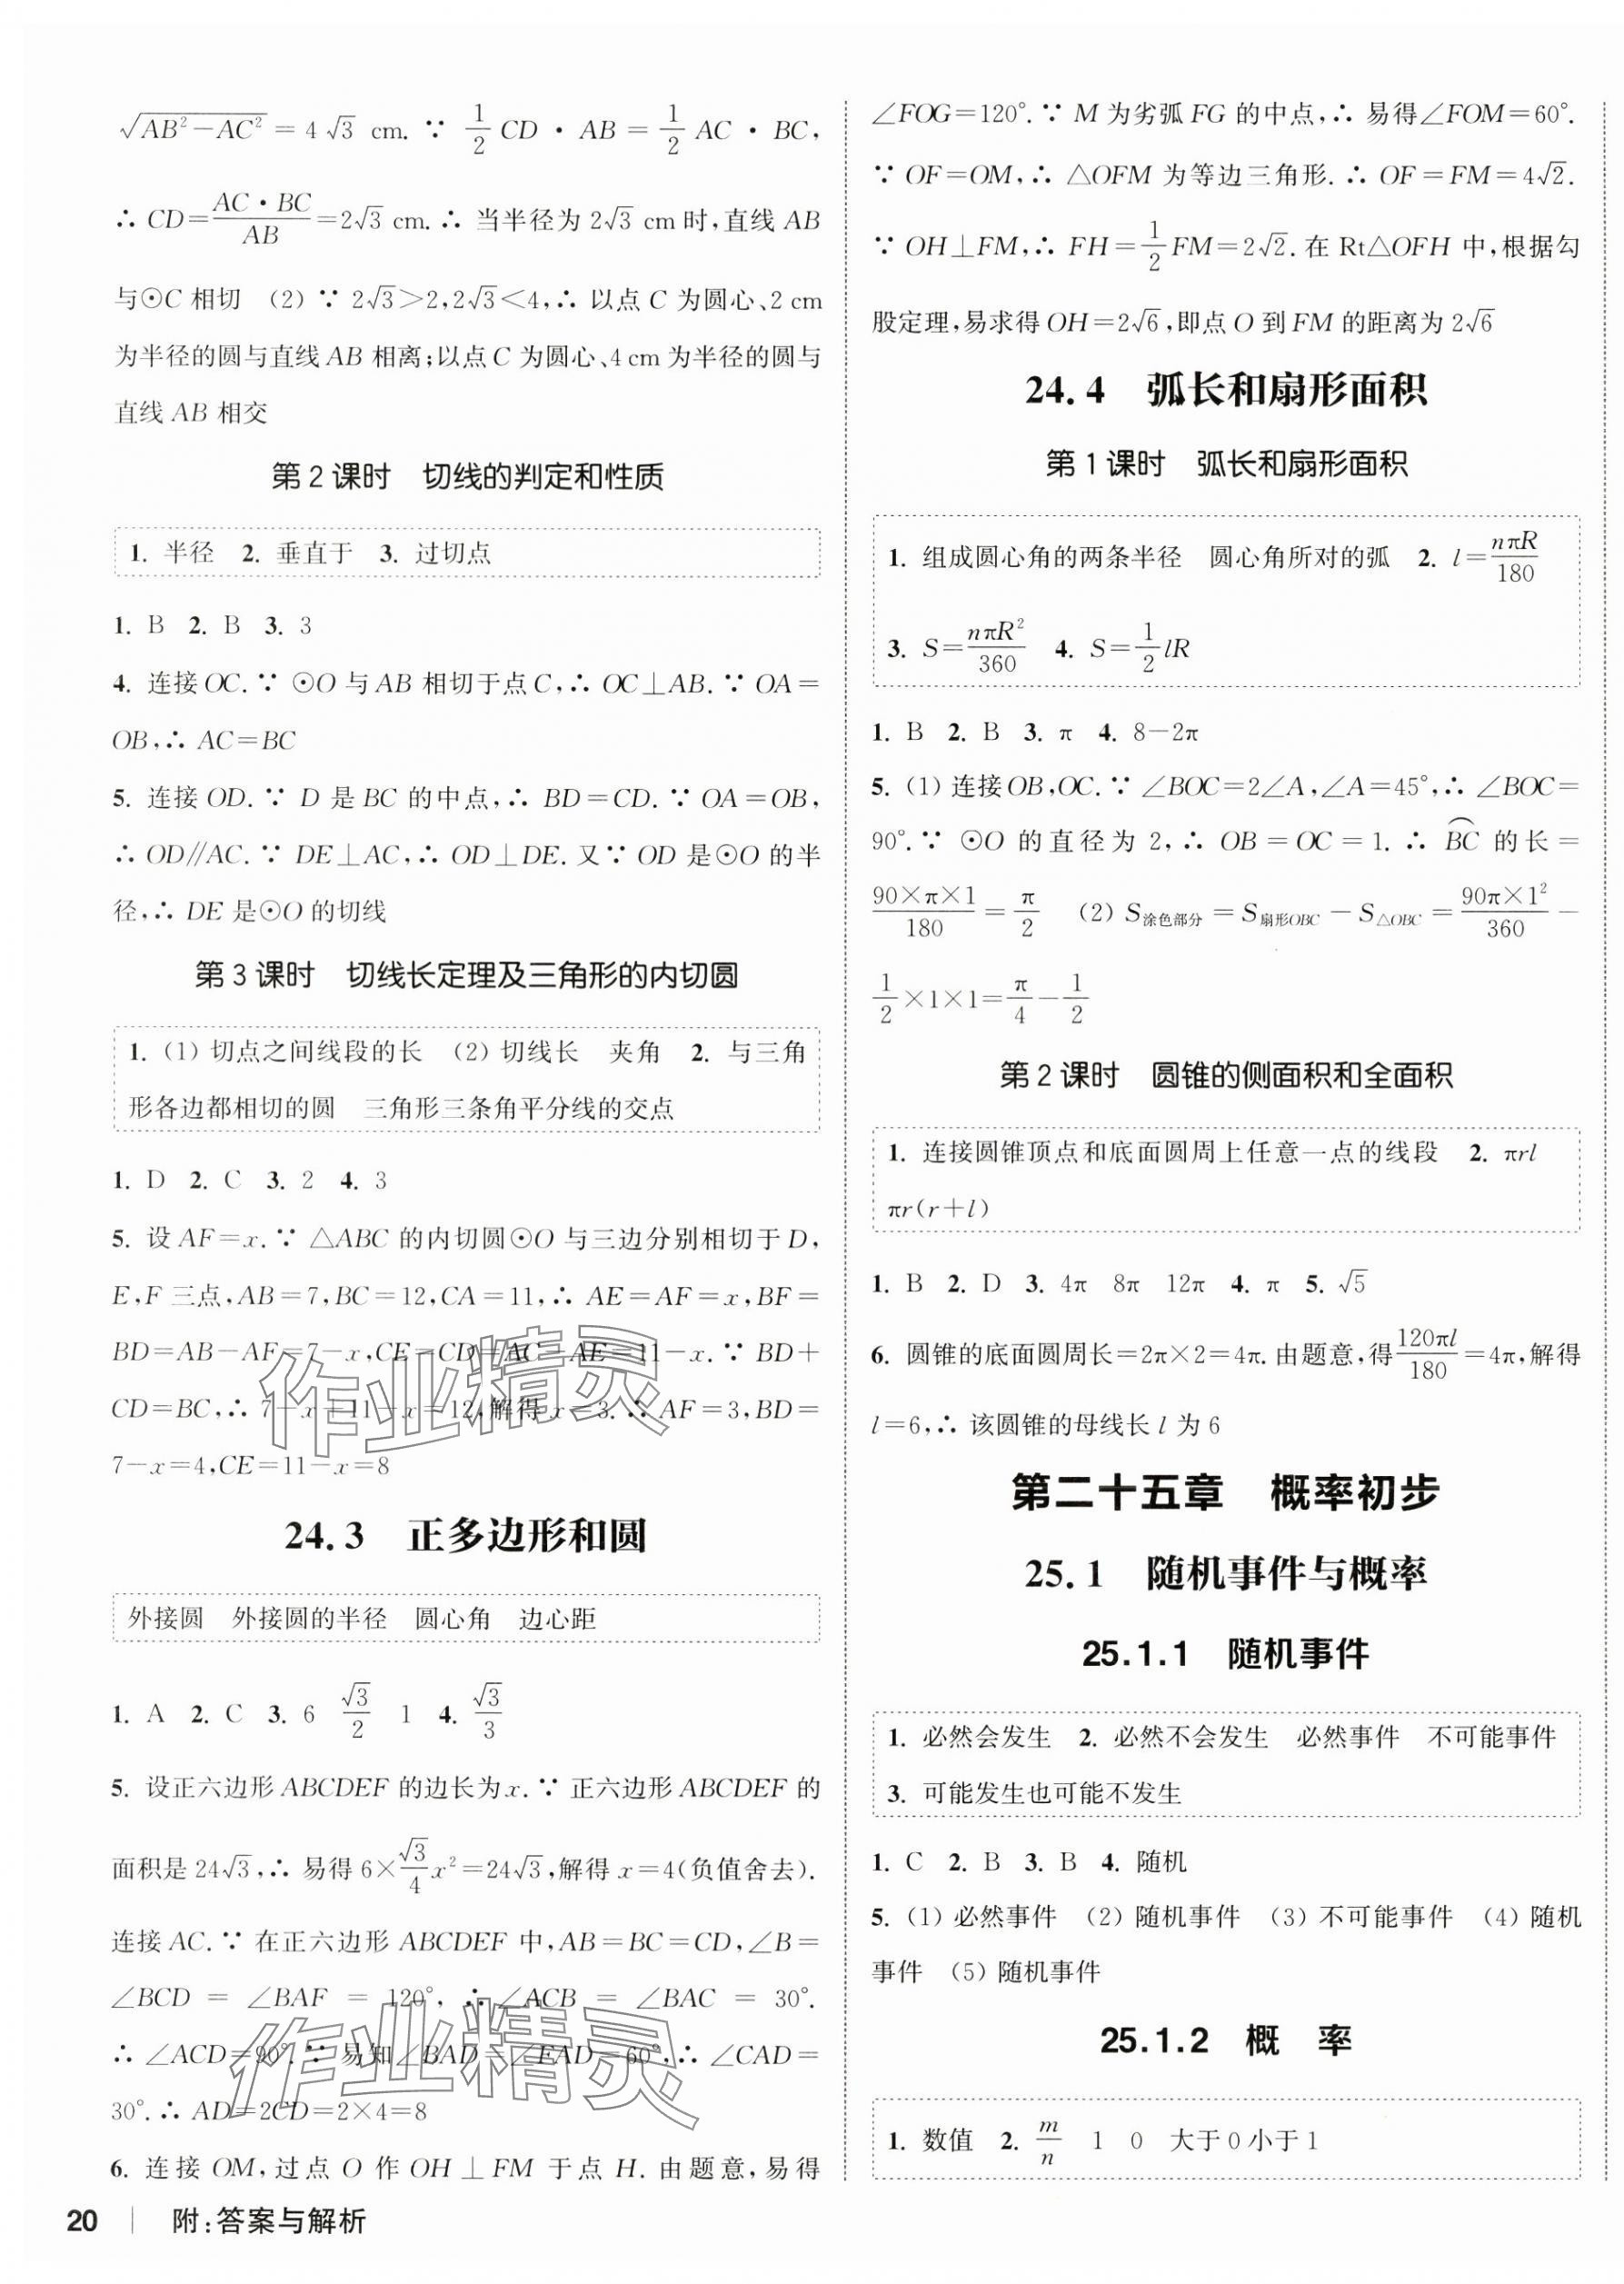 √(AB²−AC²) = 4√3 cm. ∵ 1/2 CD · AB = 1/2 AC · BC,
∴ CD = AC · BC/AB = 2√3 cm. ∴ 当半径为 2√3 cm 时,直线 AB
与⊙C 相切 (2) ∵ 2√3>2,2√3<4,∴ 以点 C 为圆心、2 cm
为半径的圆与直线 AB 相离;以点 C 为圆心、4 cm 为半径的圆与
直线 AB 相交
第 2 课时 切线的判定和性质
1. 半径 2. 垂直于 3. 过切点
1. B 2. B 3. 3
4. 连接 OC. ∵ ⊙O 与 AB 相切于点 C,∴ OC⊥AB. ∵ OA=
OB,∴ AC=BC
5. 连接 OD. ∵ D 是 BC 的中点,∴ BD=CD. ∵ OA=OB,
∴ OD∥AC. ∵ DE⊥AC,∴ OD⊥DE. 又∵ OD 是⊙O 的半
径,∴ DE 是⊙O 的切线
第 3 课时 切线长定理及三角形的内切圆
1. (1) 切点之间线段的长 (2) 切线长 夹角 2. 与三角
形各边都相切的圆 三角形三条角平分线的交点
1. D 2. C 3. 2 4. 3
5. 设 AF=x. ∵ △ABC 的内切圆⊙O 与三边分别相切于 D,
E,F 三点,AB=7,BC=12,CA=11,∴ AE=AF=x,BF=
BD=AB−AF=7−x,CE=CD=AC−AE=11−x. ∵ BD+
CD=BC,∴ 7−x+11−x=12,解得 x=3. ∴ AF=3,BD=
7−x=4,CE=11−x=8
24.3 正多边形和圆
外接圆 外接圆的半径 圆心角 边心距
1. A 2. C 3. 6 √3/2 1 4. √3/3
5. 设正六边形 ABCDEF 的边长为 x. ∵ 正六边形 ABCDEF 的
面积是 24√3,∴ 易得 6×√3/4 x²=24√3,解得 x=4(负值舍去).
连接 AC. ∵ 在正六边形 ABCDEF 中,AB=BC=CD,∠B=
∠BCD = ∠BAF = 120°, ∴ ∠ACB = ∠BAC = 30°.
∴ ∠ACD=90°. ∵ 易知∠BAD=∠FAD=60°,∴ ∠CAD=
30°. ∴ AD=2CD=2×4=8
6. 连接 OM,过点 O 作 OH⊥FM 于点 H. 由题意,易得
20 附:答案与解析
∠FOG=120°. ∵ M 为劣弧 FG 的中点,∴ 易得∠FOM=60°.
∵ OF=OM,∴ △OFM 为等边三角形. ∴ OF=FM=4√2.
∵ OH⊥FM,∴ FH=1/2 FM=2√2. 在 Rt△OFH 中,根据勾
股定理,易求得 OH=2√6,即点 O 到 FM 的距离为 2√6
24.4 弧长和扇形面积
第 1 课时 弧长和扇形面积
1. 组成圆心角的两条半径 圆心角所对的弧 2. l=nπR/180
3. S=nπR²/360 4. S=1/2 lR
1. B 2. B 3. π 4. 8−2π
5. (1) 连接 OB,OC. ∵ ∠BOC=2∠A,∠A=45°,∴ ∠BOC=
90°. ∵ ⊙O 的直径为 2,∴ OB=OC=1. ∴ ⌒BC 的长=
90×π×1/180=π/2 (2) S涂色部分=S扇形OBC−S△OBC=90π×1²/360−
1/2×1×1=π/4−1/2
第 2 课时 圆锥的侧面积和全面积
1. 连接圆锥顶点和底面圆周上任意一点的线段 2. πrl
πr(r+l)
1. B 2. D 3. 4π 8π 12π 4. π 5. √5
6. 圆锥的底面圆周长=2π×2=4π. 由题意,得120πl/180=4π,解得
l=6,∴ 该圆锥的母线长 l 为 6
第二十五章 概率初步
25.1 随机事件与概率
25.1.1 随机事件
1. 必然会发生 2. 必然不会发生 必然事件 不可能事件
3. 可能发生也可能不发生
1. C 2. B 3. B 4. 随机
5. (1) 必然事件 (2) 随机事件 (3) 不可能事件 (4) 随机
事件 (5) 随机事件
25.1.2 概 率
1. 数值 2. m/n 1 0 大于 0 小于 1
作业精灵
作业精灵